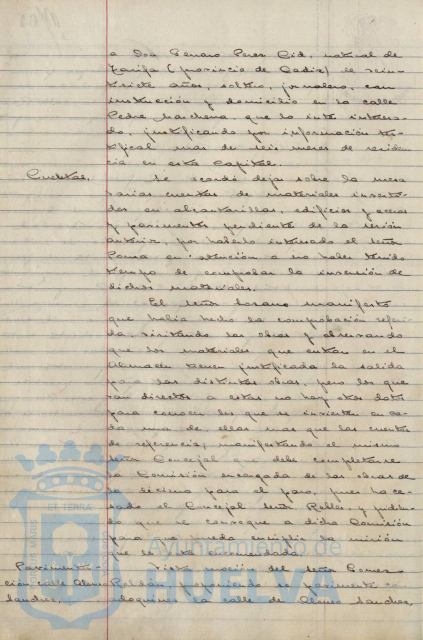 a Don Genaro Perez Cid, natural de
Tarifa (provincia de Cadiz) de vein-
tisiete años, soltero, jornalero, con
instrucción y domicilio en la calle
Pedro Marchena, que lo tiene interesa-
do, justificando por información tes-
tifical mas de seis meses de residen-
cia en esta Capital.
Cuentas.
Se acordó dejar sobre la mesa
varias cuentas de materiales inverti-
dos en alcantarillas, edificios y aceras
y pavimentos pendiente de la sesión
anterior, por haberlo interesado el señor
en atención a no haber tenido
tiempo de comprobar la inversión de
dichos materiales.
El señor Lozano manifestó
que habia hecho la comprobación referi-
da, visitando las obras y observando
que los materiales que entran en el
Almacén tienen justificada la salida
para las distintas obras, pero los que
van directos a estas no hay otros datos
para conocer los que se invierten en ca-
da una de ellas mas que las cuentas
de referencia, manifestando el mismo
señor Concejal que debe completarse
la Comisión encargada de las obras de
la décima para el paro, pues ha ce-
sado el Concejal señor y pidien-
do que se consegue a dicha Comisión
para que pueda cumplir la misión
que le esta encomendada.
Pavimenta-
ción calle Alonso
Sanchez.
Vista moción del señor Gomez
Roldán, proponiendo se pavimente con
adoquines la calle de Alonso Sanchez,
EI TERRA
Ayuntamiento de
HUELVA